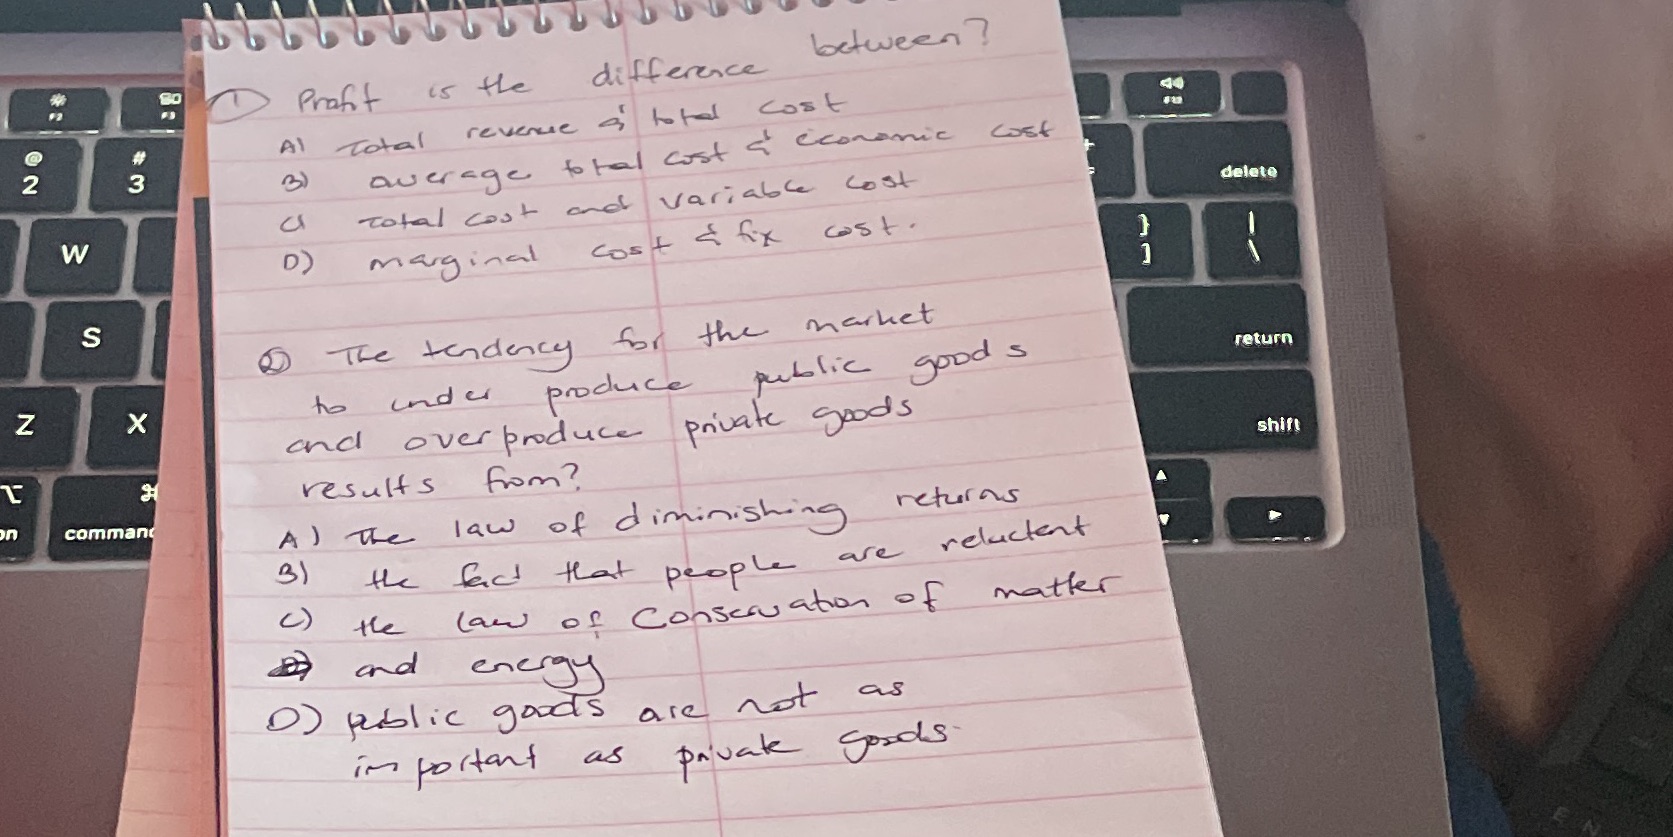 ① Profit is the difference between?
A) Total revenue & total cost
B) average total cost & economic cost
C) Total cost and variable cost
D) marginal cost & fix cost.
② The tendency for the market
to under produce public goods
and overproduce private goods
results from?
A) The law of diminishing returns
B) the fact that people are reluctent
C) the law of Conservation of matter
and energy
D) public goods are not as
important as private goods.
F2
80 F3
F12
@ 2
# 3
delete
W
} ]
| \
S
return
Z
X
shift
⌥ ⌘
on command